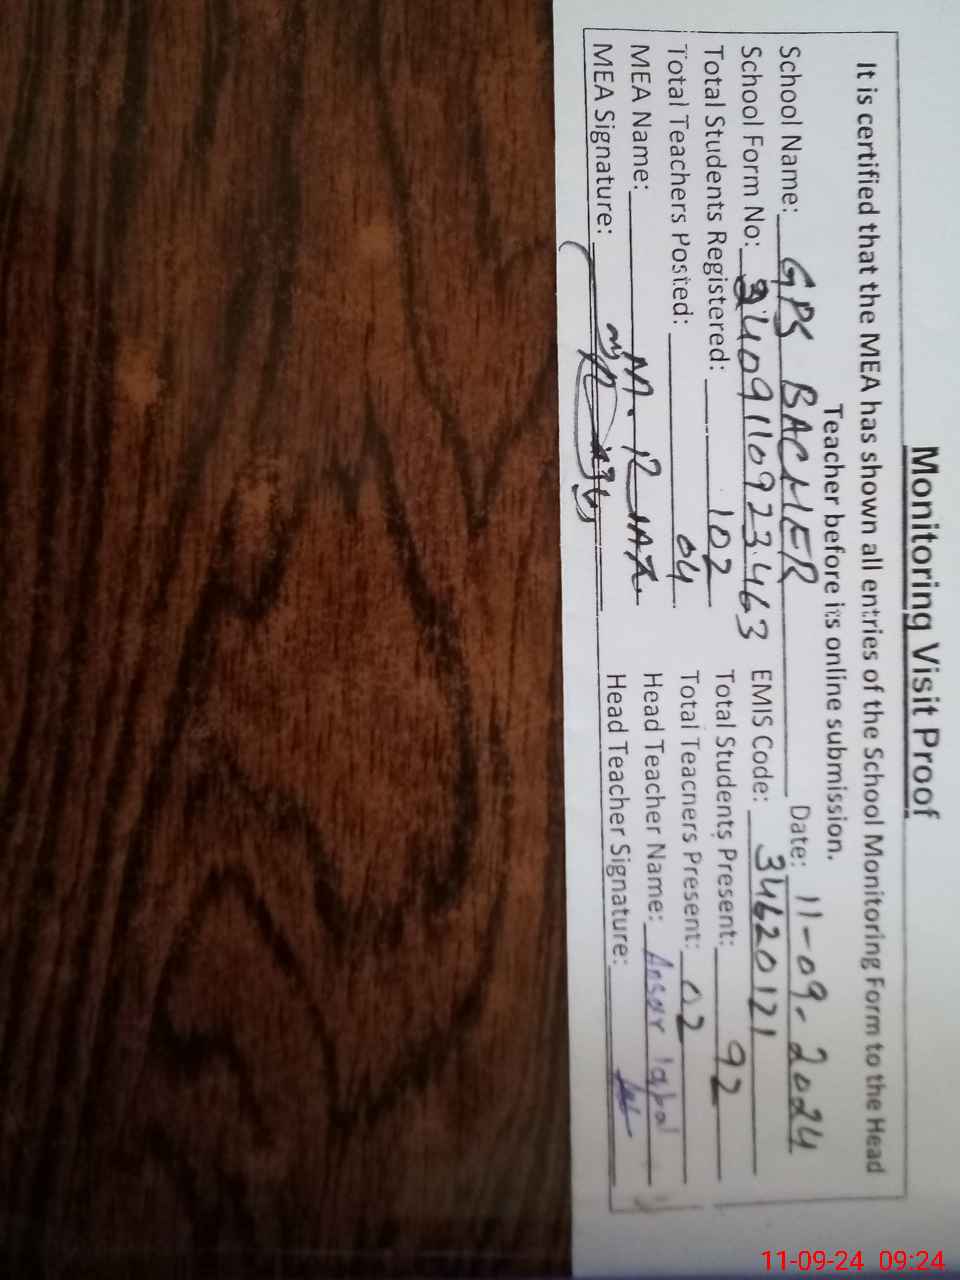 Monitoring Visit Proof
It is certified that the MEA has shown all entries of the School Monitoring Form to the Head
Teacher before its online submission.
School Name: GPS BACHER Date: 11-09-2024
School Form No: 3409110923463 EMIS Code: 34620121
Total Students Registered: 102 Total Students Present: 92
Total Teachers Posted: 04 Total Teachers Present: 02
MEA Name: M. RIAZ Head Teacher Name: Ansar Iqbal
MEA Signature: Head Teacher Signature:
11-09-24 09:24